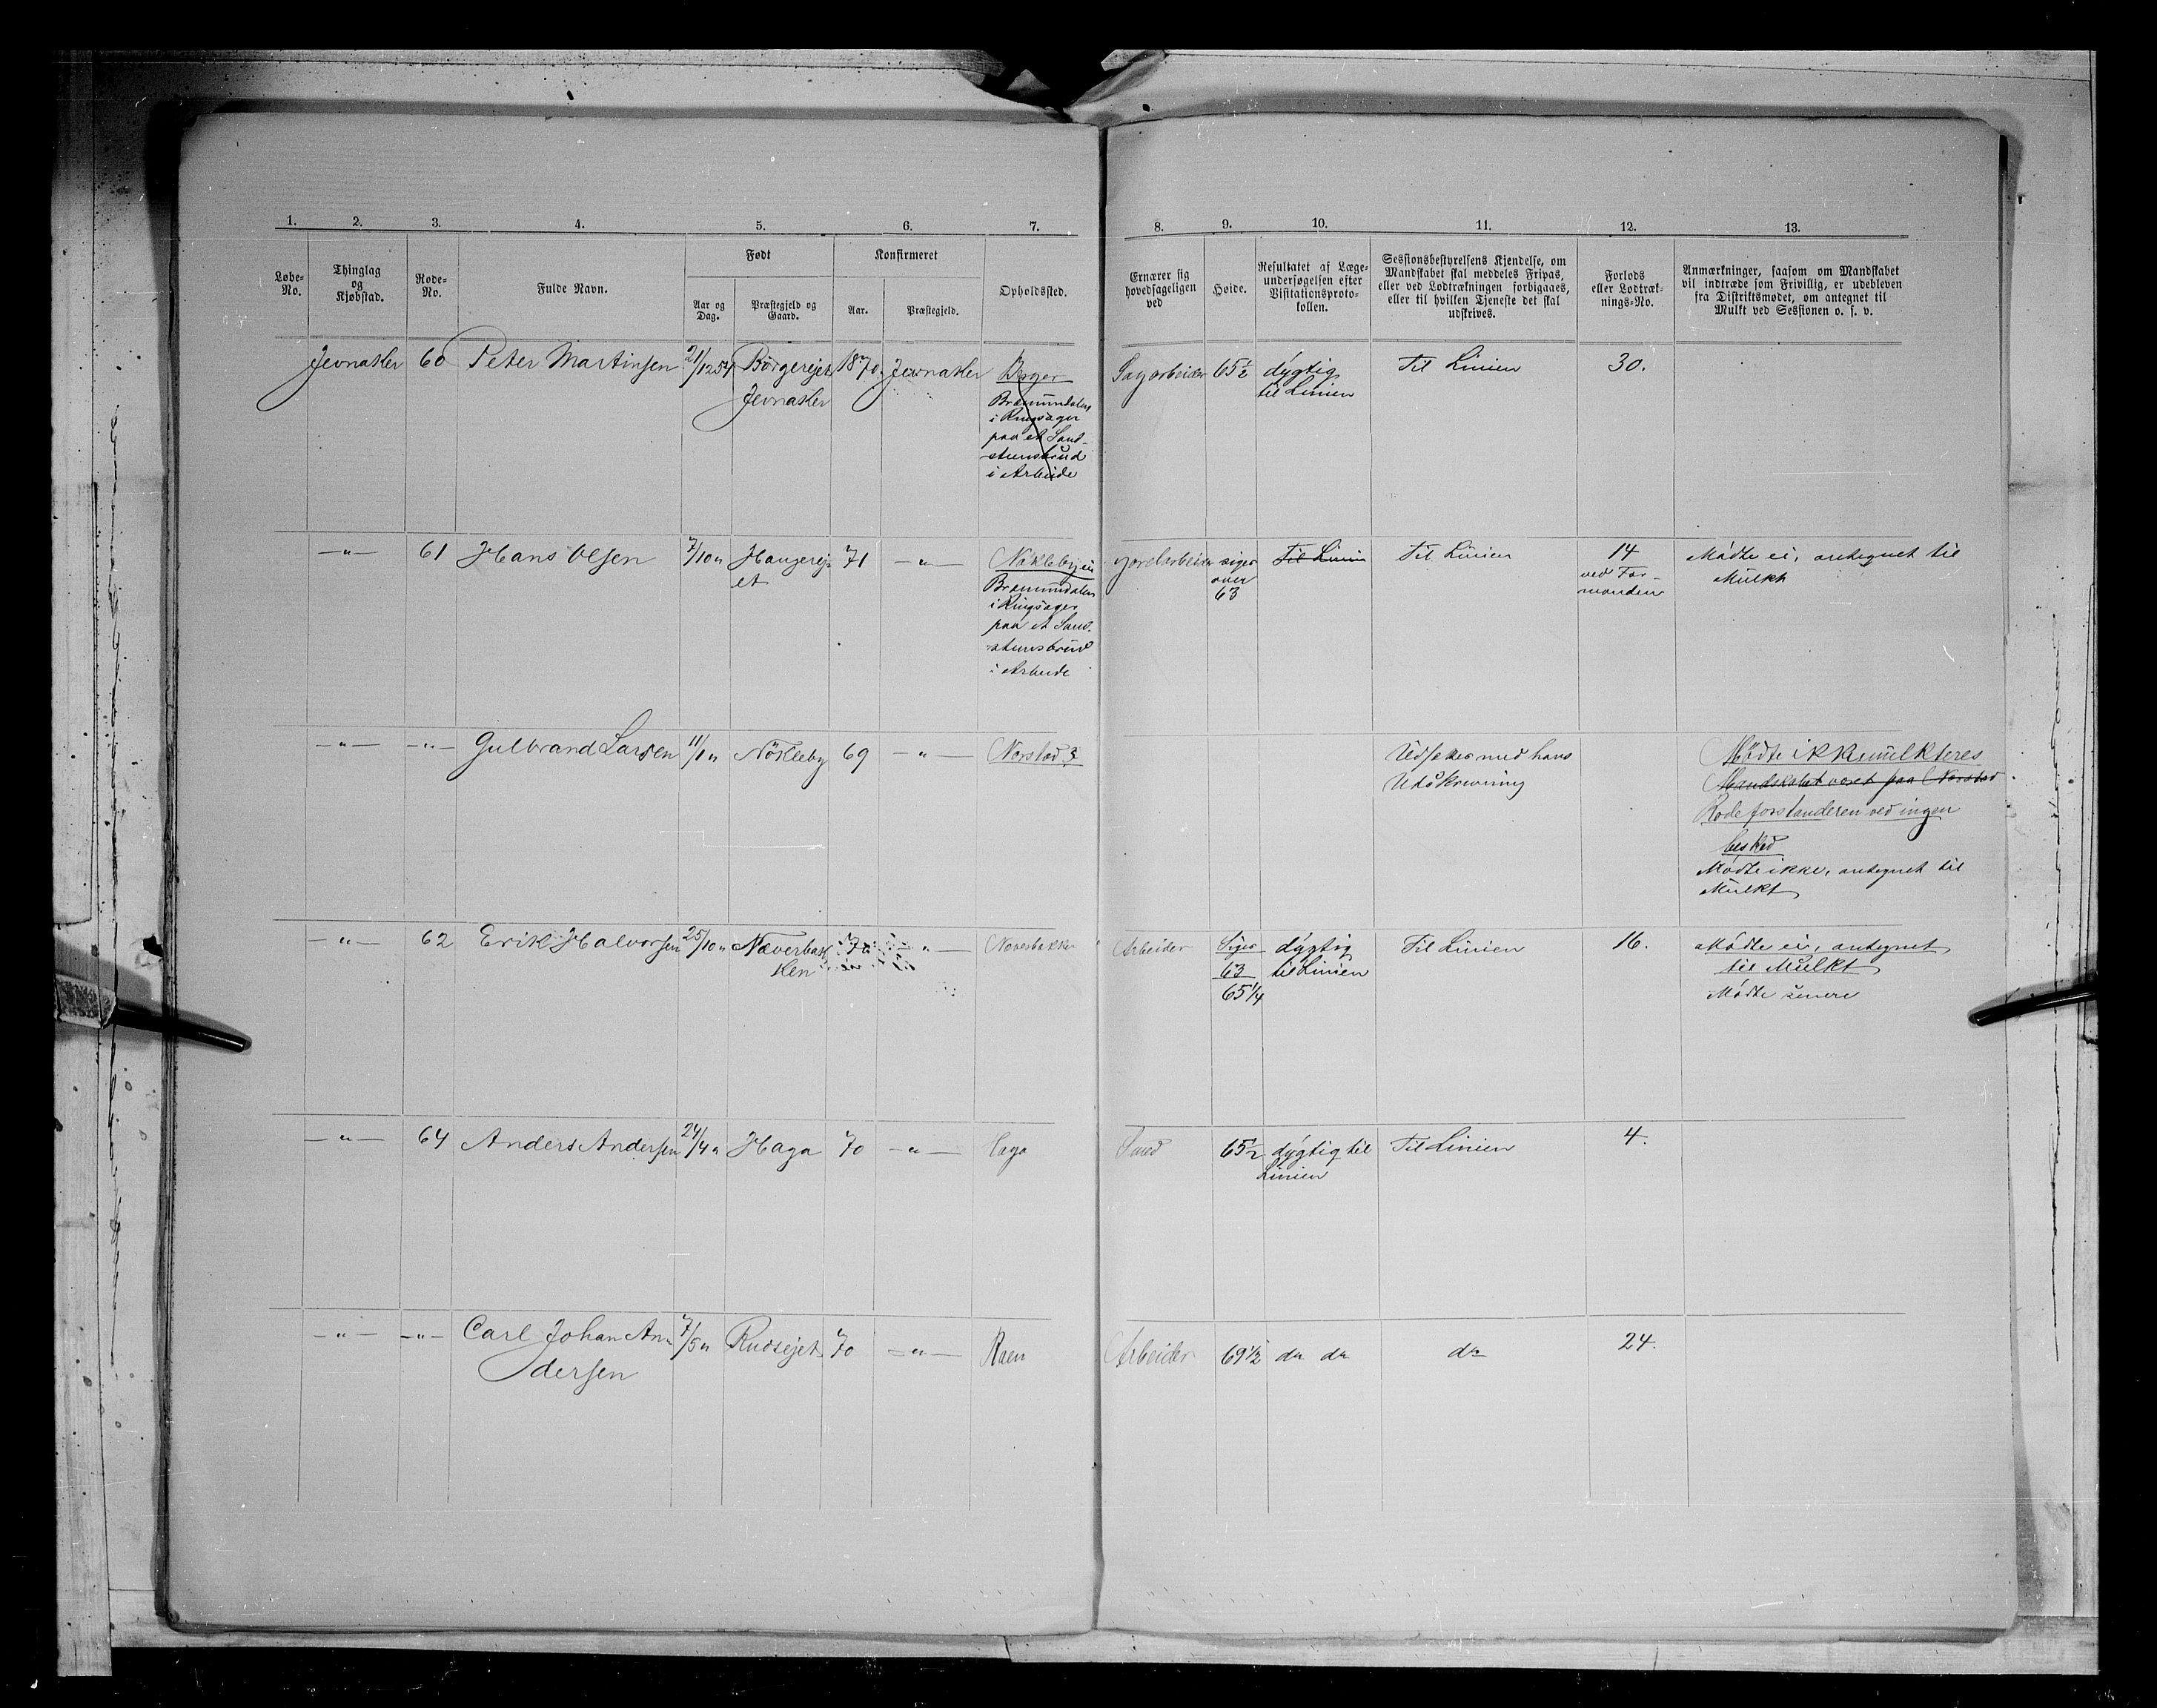 1. 2. 3. 4. 5. 6. 7.
Løbe-No.
Thinglag og Kjøbstad.
Rode-No.
Fulde Navn.
Født
Aar og Dag.
Præstegjeld og Gaard.
Konfirmeret
Aar.
Præstegjeld.
Opholdssted.
8. 9. 10. 11. 12. 13.
Ernærer sig hovedsageligen ved
Høide.
Resultatet af Læge-
undersøgelsen efter
Visitationsproto-
kollen.
Sessionsbestyrelsens Kjendelse, om
Mandskabet skal meddeles Fripas,
eller ved Lodtrækningen forbigaaes,
eller til hvilken Tjeneste det skal
udskrives.
Forlods
eller Lodtræk-
nings-No.
Anmærkninger, saasom om Mandskabet
vil indtræde som Frivillig, er udebleven
fra Distriktsmødet, om antegnet til
Mulkt ved Sessionen o. s. v.
Jevnaker 60 Peter Martinsen 21/12 54 Børgerejet 1870 Jevnaker Berger
Jevnaker
Brømundalen
i Ringsager
paa et Sand-
stensbrud
i Arbeide
Sagarbeider 65½ dygtig Til Linien 30.
til Linien
—"— 61 Hans Olsen 7/10 " Haugerej- 71 —"— Nøklebyeie
et
Brømundalen
i Ringsager
paa et Sand-
stensbrud
i Arbeide
Jordarbeider siger Til Linien Til Linien 14 Mødte ei, antegnet til
over ved For- Mulkt
63 manden
—"— —"— Gulbrand Larsen 11/1 " Nökleby 69 —"— Norstad ?
Udsættes med hans Mødte ikke mulkteres
Udskrivning Mandskabet været paa Norstad
Rodeforstanderen ved ingen
besked
Mødte ikke, antegnet til
Mulkt
—"— 62 Erik Halvorsen 25/10 " Næverbak 70 —"— Neverbakken
ken
Arbeider Siger dygtig Til Linien 16. Mødte ei, antegnet
63 til Linien til Mulkt
65¼ Mødte senere
—"— 64 Anders Andersen 24/4 " Haga 70 —"— Haga
65½ dygtig til Til Linien 4.
Linien
—"— —"— Carl Johan An- 7/5 " Rudsejet 70 —"— Raen
dersen
Arbeider 69½ do do do 24.